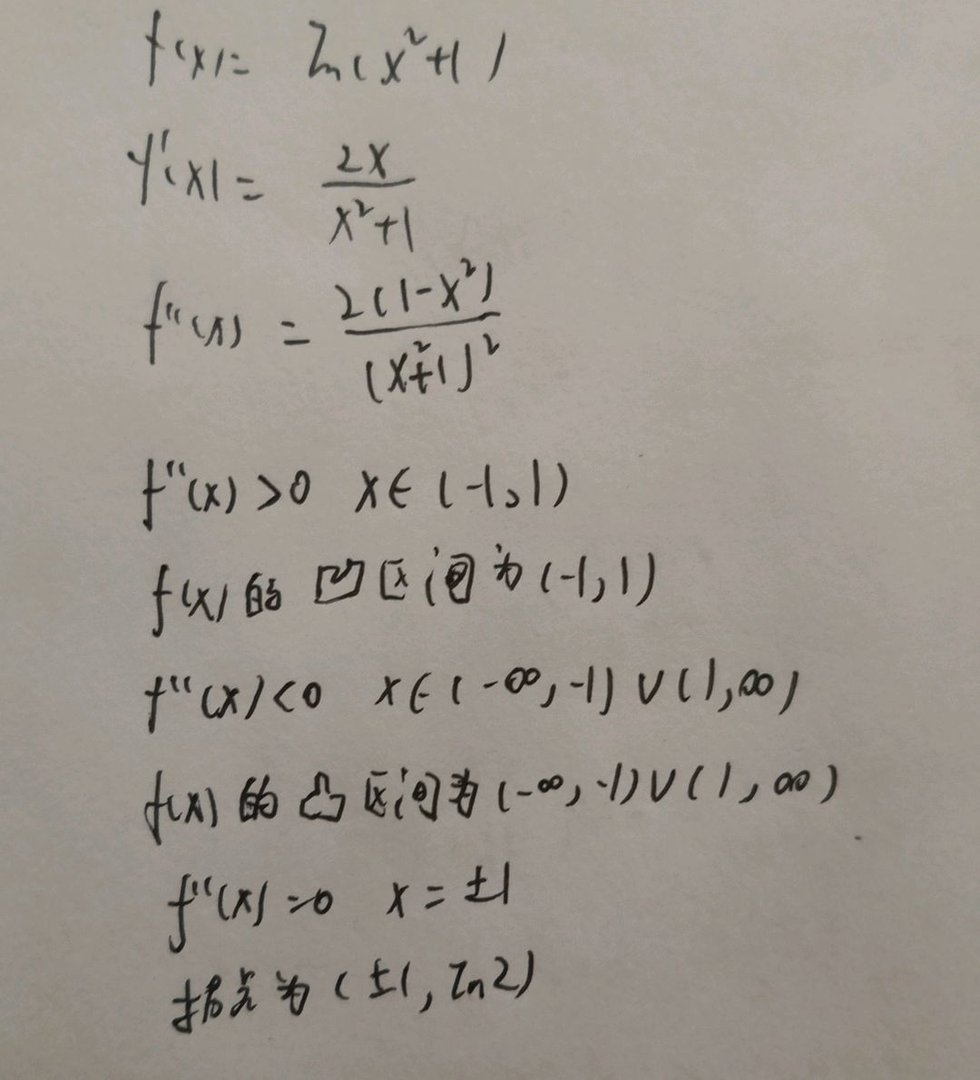 f(x)= ln(x²+1)
y'(x)= 2x/(x²+1)
f''(x) = 2(1-x²)/(x²+1)²
f''(x)>0 x∈(-1,1)
f(x)的凹区间为(-1,1)
f''(x)<0 x∈(-∞,-1)∪(1,∞)
f(x)的凸区间为(-∞,-1)∪(1,∞)
f''(x)=0 x=±1
拐点为(±1,ln2)